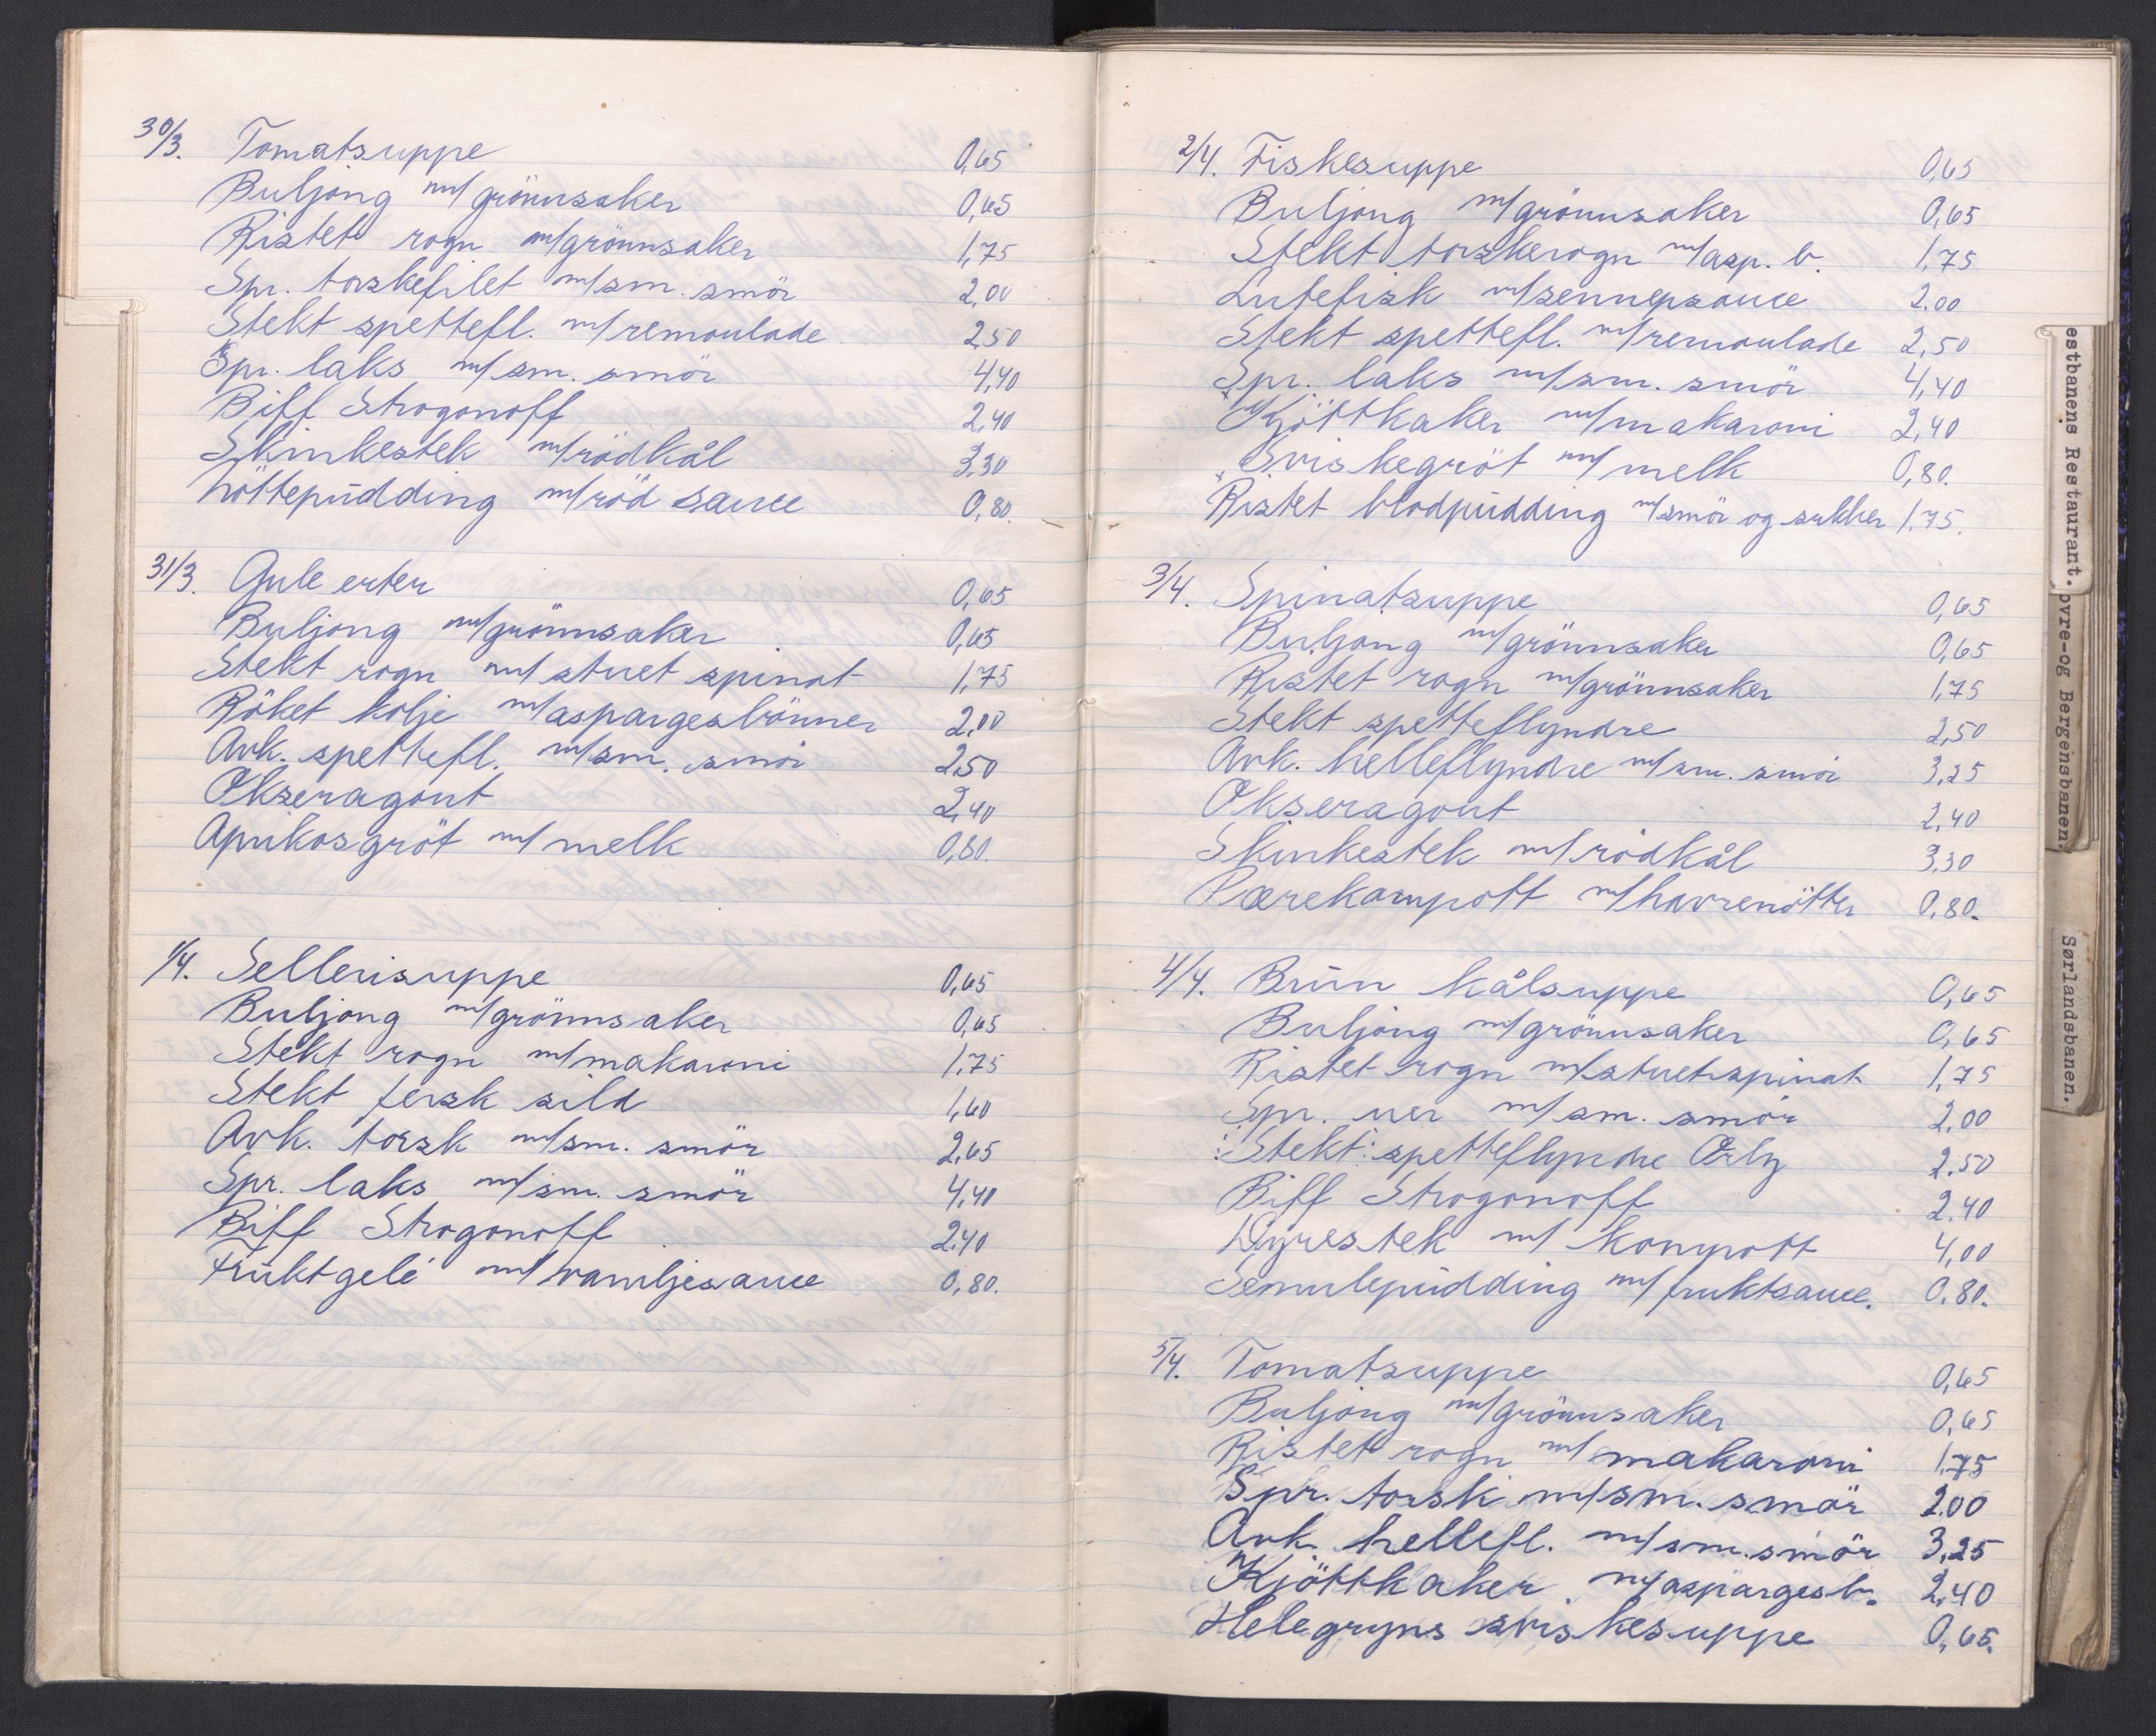 30/3. Tomatsuppe 0,65
Buljong m/grönnsaker 0,65
Ristet rogn m/grönnsaker 1,75
Spr. torskefilet m/sm. smör 2,00
Stekt spettefl. m/remoulade 2,50
Spr. laks m/sm. smör 4,40
Biff Strogonoff 2,40
Skinkestek m/rödkål 3,30
Nöttepudding m/röd sauce 0,80.
31/3. Gule erter 0,65
Buljong m/grönnsaker 0,65
Stekt rogn m/stuet spinat 1,75
Röket kolje m/aspargesbönner 2,00
Avk. spettefl. m/sm. smör 2,50
Okseragout 2,40
Aprikosgröt m/melk 0,80.
1/4. Sellerisuppe 0,65
Buljong m/grönnsaker 0,65
Stekt rogn m/makaroni 1,75
Stekt fersk sild 1,60
Avk. torsk m/sm. smör 2,65
Spr. laks m/sm. smör 4,40
Biff Strogonoff 2,40
Fruktgelé m/vaniljesauce 0,80.
2/4. Fiskesuppe 0,65
Buljong m/grönnsaker 0,65
Stekt torskerogn m/asp. b. 1,75
Lutefisk m/sennepsauce 2.00
Stekt spettefl. m/remoulade 2,50
Spr. laks m/sm. smör 4,40
Kjöttkaker m/makaroni 2,40
Sviskegröt m/melk 0,80.
Ristet blodpudding m/smör og sukker 1,75.
3/4. Spinatsuppe 0,65
Buljong m/grönnsaker 0,65
Ristet rogn m/grönnsaker 1,75
Stekt spetteflyndre 2,50
Avk. helleflyndre m/sm. smör 3,25
Okseragout 2,40
Skinkestek m/rödkål 3,30
Pærekompott m/havrenötter 0,80.
4/4. Brun kålsuppe 0,65
Buljong m/grönnsaker 0,65
Ristet rogn m/stuet spinat 1,75
Spr. uer m/sm. smör 2,00
Stekt spetteflyndre Orly 2,50
Biff Strogonoff 2,40
Dyrestek m/ kompott 4,00
Semulepudding m/fruktsauce. 0.80.
5/4. Tomatsuppe 0,65
Buljong m/grönnsaker 0,65
Ristet rogn m/makaroni 1,75
Spr. torsk m/sm. smör 2.00
Avk. hellefl. m/sm. smör 3,25
Kjöttkaker m/aspargesb. 2,40
Helegryns sviskesuppe 0,65.
estbanens Restaurant.
ovre-og Bergensbanen.
Sørlandsbanen.